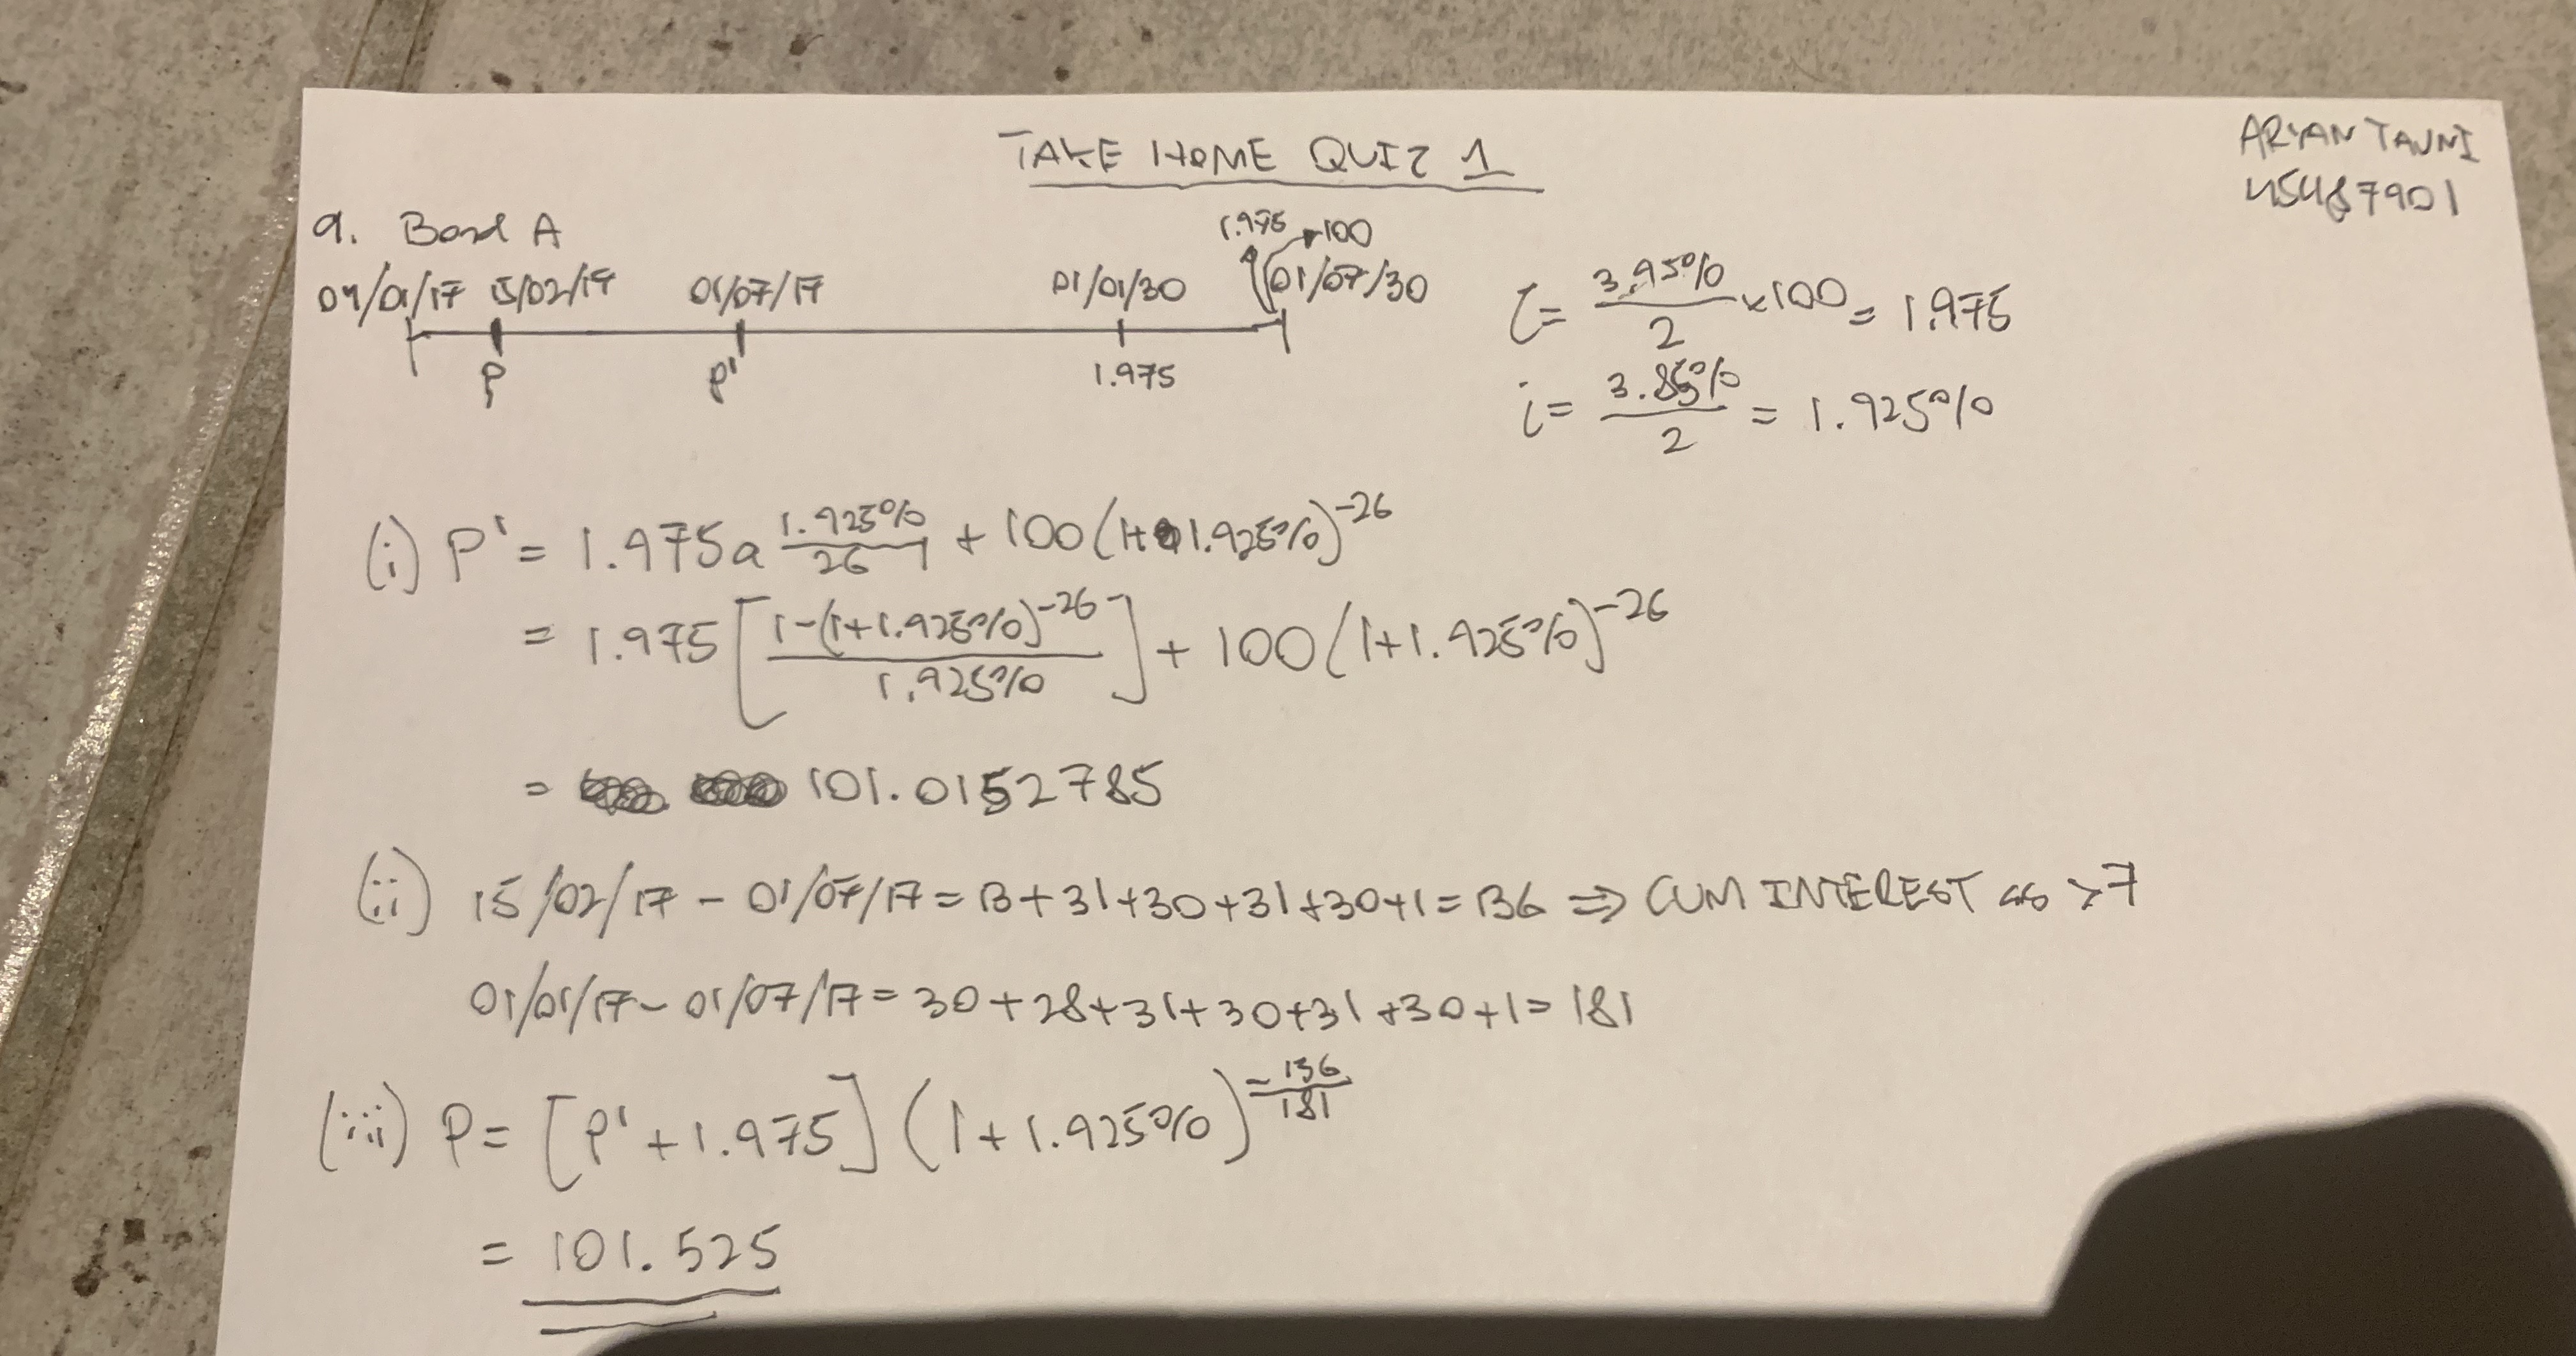 TAKE HOME QUIZ 1
ARYAN TAJNI
45487901
a. Bond A
1.975 100
01/01/17 15/02/17 01/07/17 01/01/30 01/07/30
P P' 1.975
C = 3.95%/2 × 100 = 1.975
i = 3.85%/2 = 1.925%
(i) P' = 1.975 a 26 1.925% + 100(1+1.925%)^-26
= 1.975 [1-(1+1.925%)^-26 / 1.925%] + 100(1+1.925%)^-26
= 101.0152785
(ii) 15/02/17 - 01/07/17 = 13+31+30+31+30+1 = 136 ⇒ CUM INTEREST as >7
01/01/17 - 01/07/17 = 30+28+31+30+31+30+1 = 181
(iii) P = [P' + 1.975] (1+1.925%)^-136/181
= 101.525